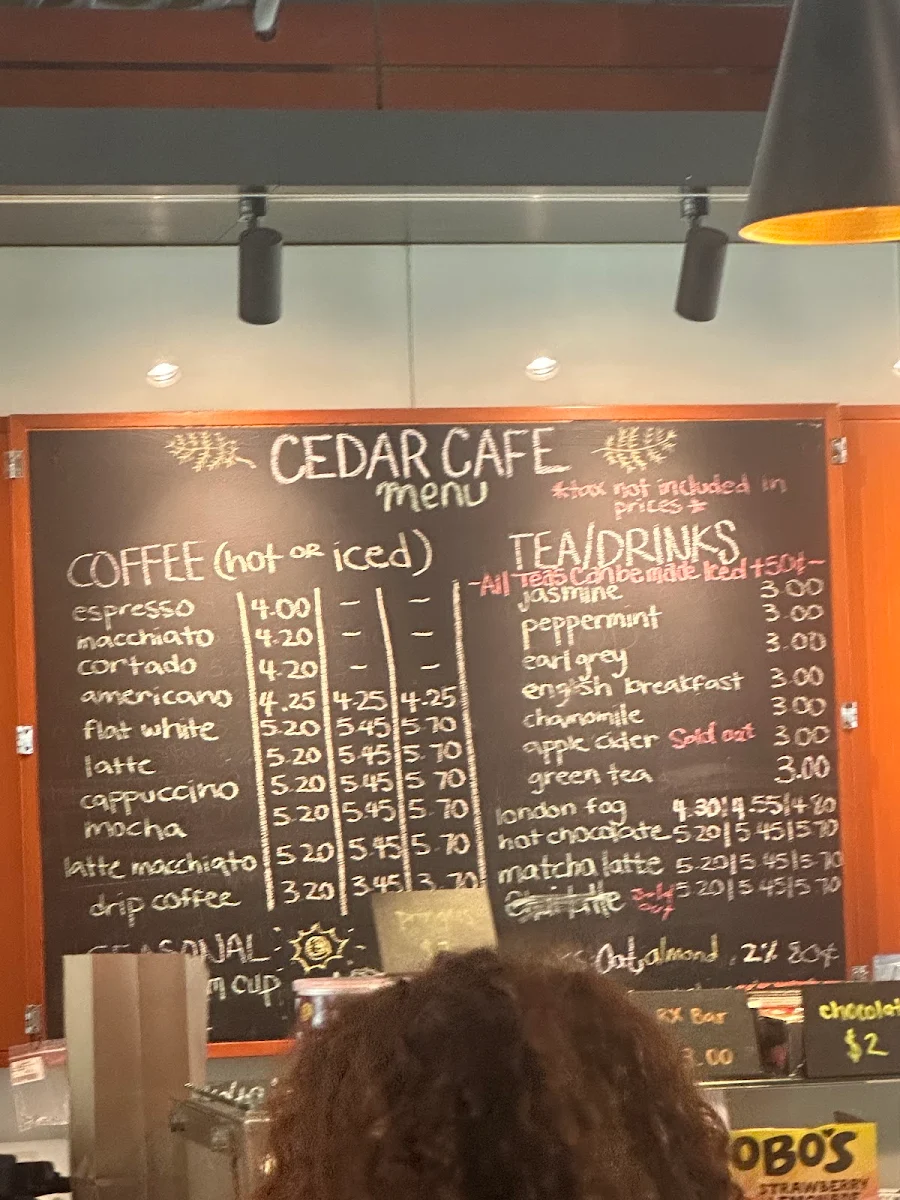 CEDAR CAFE
menu
*tax not included in
prices*
COFFEE (hot OR iced)
espresso 4.00 - -
macchiato 4.20 - -
cortado 4.20 - -
americano 4.25 4.25 4.25
flat white 5.20 5.45 5.70
latte 5.20 5.45 5.70
cappuccino 5.20 5.45 5.70
mocha 5.20 5.45 5.70
latte macchiato 5.20 5.45 5.70
drip coffee 3.20 3.45 3.70
SEASONAL:
cup
TEA/DRINKS
-All Teas Can be made Iced +50¢-
jasmine 3.00
peppermint 3.00
earl grey 3.00
english breakfast 3.00
chamomile 3.00
apple cider Sold out 3.00
green tea 3.00
london fog 4.30|4.55|4.80
hot chocolate 5.20|5.45|5.70
matcha latte 5.20|5.45|5.70
sold out 5.20|5.45|5.70
Oat, almond, 2% 80¢
RX Bar
3.00
chocolat
$2
OBO'S
STRAWBERRY